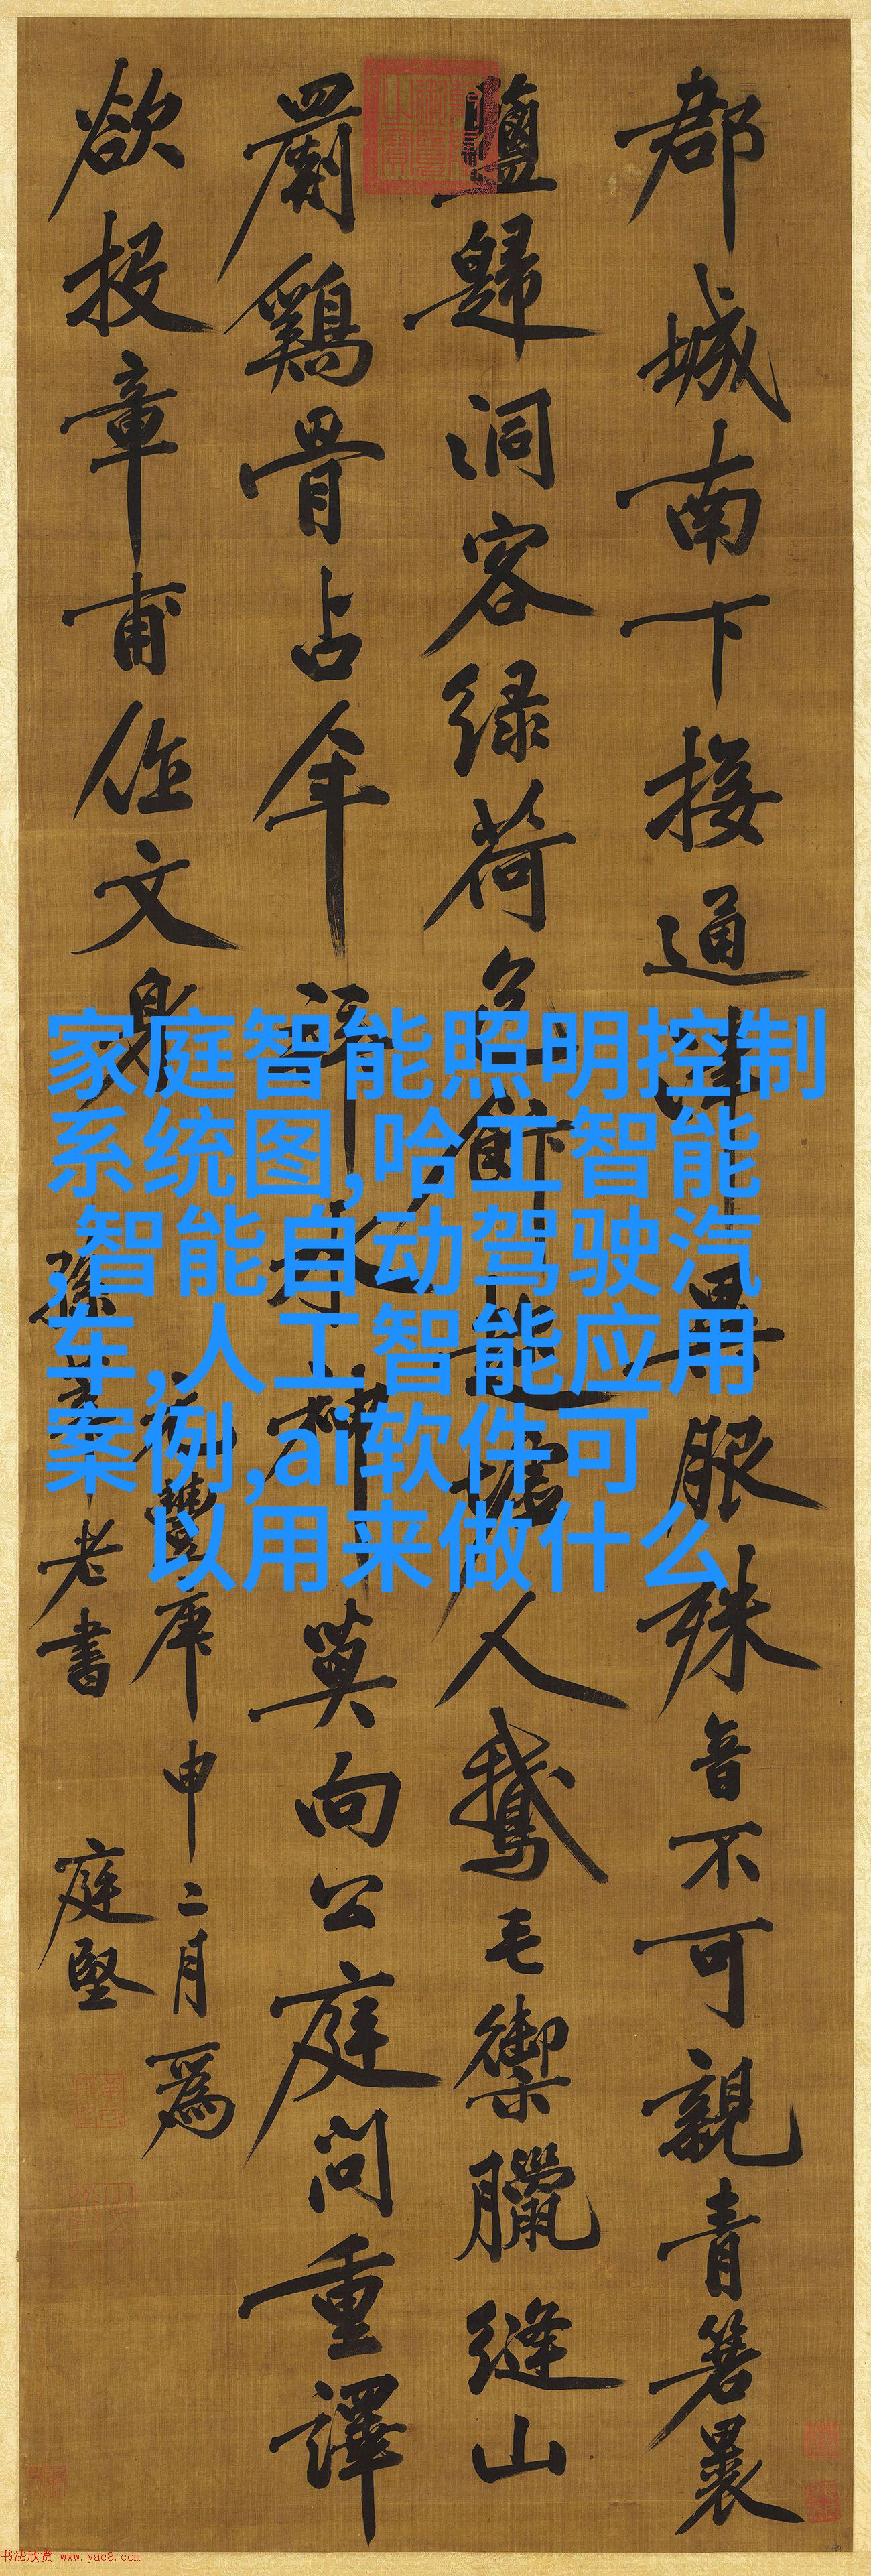 郡城南下接通津異服殊音不可親青箬裹
鹽歸洞客緑荷包飰趁墟人鵝毛禦臘縫山
罽鷄骨占年水神莫向公庭問重譯
欲投章甫作文身
元豐庚申二月爲
孫莘老書 庭堅
家庭智能照明控制
系统图,哈工智能
,智能自动驾驶汽
车,人工智能应用
案例,ai软件可
以用来做什么
书法欣赏 www.yac8.com